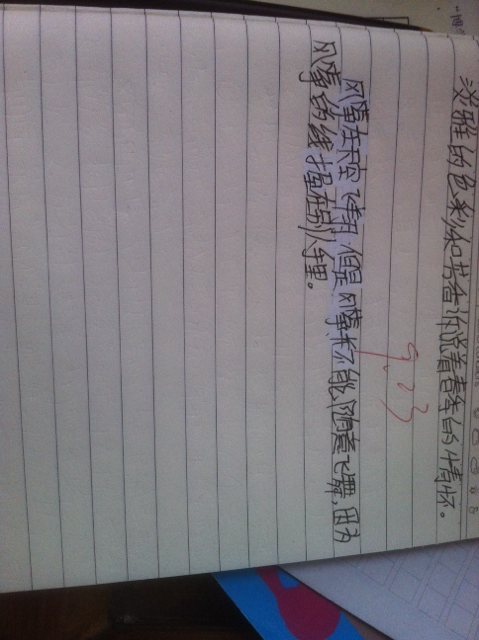 淡雅的色彩和芳香诉说着春季的情怀。
9.23
风筝在天空飞翔,但是风筝并不能随意飞舞,因为
风筝的线握在别人手里。